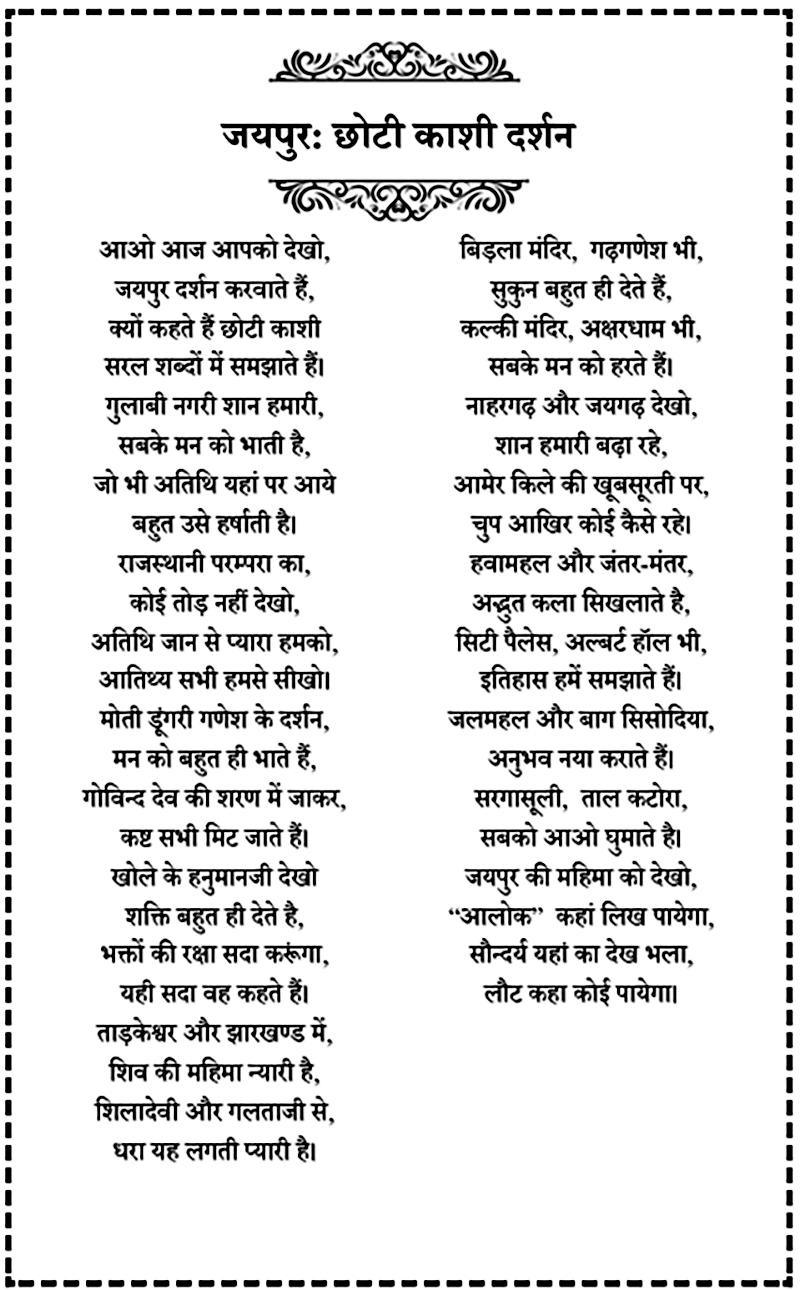 जयपुर: छोटी काशी दर्शन
आओ आज आपको देखो,
जयपुर दर्शन करवाते हैं,
क्यों कहते हैं छोटी काशी
सरल शब्दों में समझाते हैं।
गुलाबी नगरी शान हमारी,
सबके मन को भाती है,
जो भी अतिथि यहां पर आये
बहुत उसे हर्षाती है।
राजस्थानी परम्परा का,
कोई तोड़ नहीं देखो,
अतिथि जान से प्यारा हमको,
आतिथ्य सभी हमसे सीखो।
मोती डूंगरी गणेश के दर्शन,
मन को बहुत ही भाते हैं,
गोविन्द देव की शरण में जाकर,
कष्ट सभी मिट जाते हैं।
खोले के हनुमानजी देखो
शक्ति बहुत ही देते है,
भक्तों की रक्षा सदा करूंगा,
यही सदा वह कहते हैं।
ताड़केश्वर और झारखण्ड में,
शिव की महिमा न्यारी है,
शिलादेवी और गलताजी से,
धरा यह लगती प्यारी है।
बिड़ला मंदिर, गढ़गणेश भी,
सुकुन बहुत ही देते हैं,
कल्की मंदिर, अक्षरधाम भी,
सबके मन को हरते हैं।
नाहरगढ़ और जयगढ़ देखो,
शान हमारी बढ़ा रहे,
आमेर किले की खूबसूरती पर,
चुप आखिर कोई कैसे रहे।
हवामहल और जंतर-मंतर,
अद्भुत कला सिखलाते है,
सिटी पैलेस, अल्बर्ट हॉल भी,
इतिहास हमें समझाते हैं।
जलमहल और बाग सिसोदिया,
अनुभव नया कराते हैं।
सरगासूली, ताल कटोरा,
सबको आओ घुमाते है।
जयपुर की महिमा को देखो,
“आलोक” कहां लिख पायेगा,
सौन्दर्य यहां का देख भला,
लौट कहा कोई पायेगा।